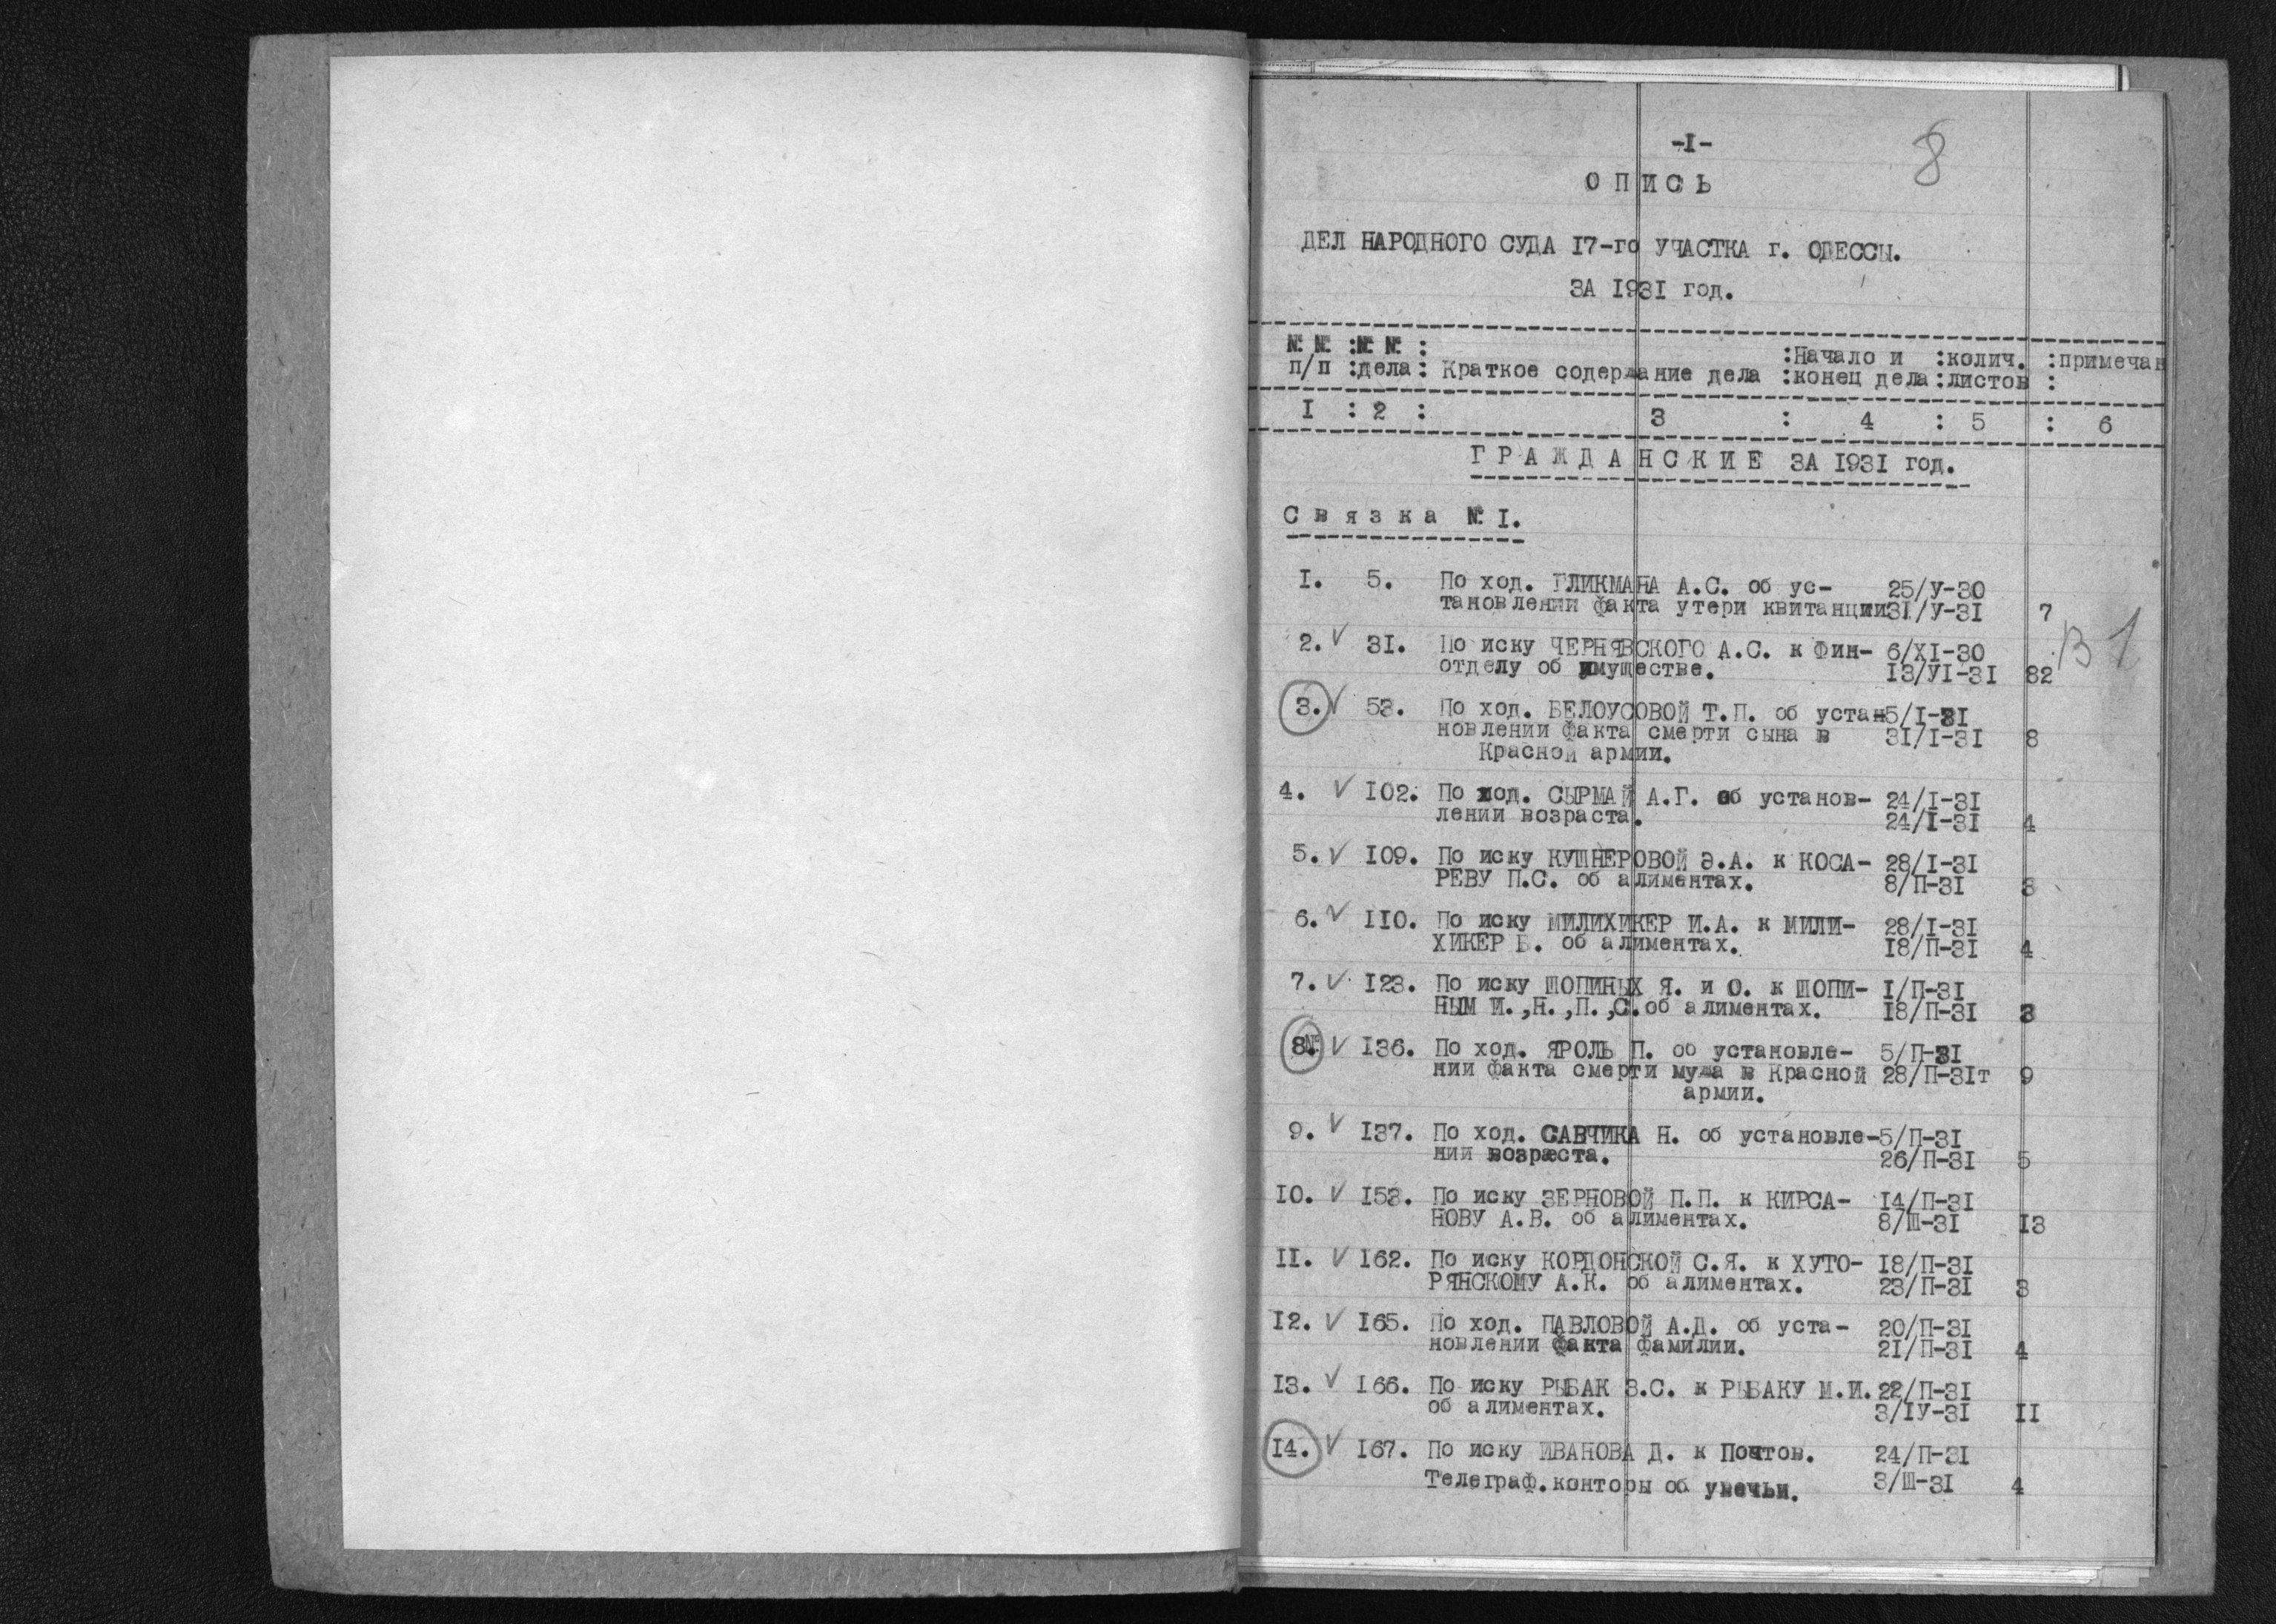 -I-
8
О П И С Ь
ДЕЛ НАРОДНОГО СУДА I7-го УЧАСТКА г. ОДЕССЫ.
ЗА I93I год.
№ № :№ № : :Начало и :колич. :примечан
п/п :дела: Краткое содержание дела :конец дела:листов :
I : 2 : 3 : 4 : 5 : 6
Г Р А Ж Д А Н С К И Е ЗА I93I год.
С в я з к а № I.
I. 5. По ход. ГЛИКМАНА А.С. об ус- 25/У-30
тановлении факта утери квитанции3I/У-3I 7
2. V 3I. По иску ЧЕРНЯВСКОГО А.С. к Фин- 6/XI-30
отделу об имуществе. I3/УI-3I 82
В 1
3. V 53. По ход. БЕЛОУСОВОЙ Т.П. об устан5/I-3I
новлении факта смерти сына в 3I/I-3I 8
Красной армии.
4. V I02. По ход. СЫРМАЙ А.Г. об установ- 24/I-3I
лении возраста. 24/I-3I 4
5. V I09. По иску КУШНЕРОВОЙ Э.А. к КОСА- 28/I-3I
РЕВУ П.С. об алиментах. 8/П-3I 3
6. V II0. По иску МИЛИХИКЕР И.А. к МИЛИ- 28/I-3I
ХИКЕР Б. об алиментах. I8/П-3I 4
7. V I23. По иску ШОПИНЫХ Я. и О. к ШОПИ- I/П-3I
НЫМ И.,Н.,П.,С.об алиментах. I8/П-3I 3
8.№ V I36. По ход. ЯРОЛЬ П. об установле- 5/П-3I
нии факта смерти мужа в Красной 28/П-3Iт 9
армии.
9. V I37. По ход. САВЧИКА Н. об установле-5/П-3I
нии возраста. 26/П-3I 5
I0. V I53. По иску ЗЕРНОВОЙ П.П. к КИРСА- I4/П-3I
НОВУ А.В. об алиментах. 8/Ш-3I I3
II. V I62. По иску КОРДОНСКОЙ С.Я. к ХУТО- I8/П-3I
РЯНСКОМУ А.К. об алиментах. 23/П-3I 3
I2. V I65. По ход. ПАВЛОВОЙ А.Д. об уста- 20/П-3I
новлении факта фамилии. 2I/П-3I 4
I3. V I66. По иску РЫБАК З.С. к РЫБАКУ М.И. 22/П-3I
об алиментах. 3/IУ-3I II
I4. V I67. По иску ИВАНОВА Д. к Почтов. 24/П-3I
Телеграф.конторы об увечьи. 3/Ш-3I 4